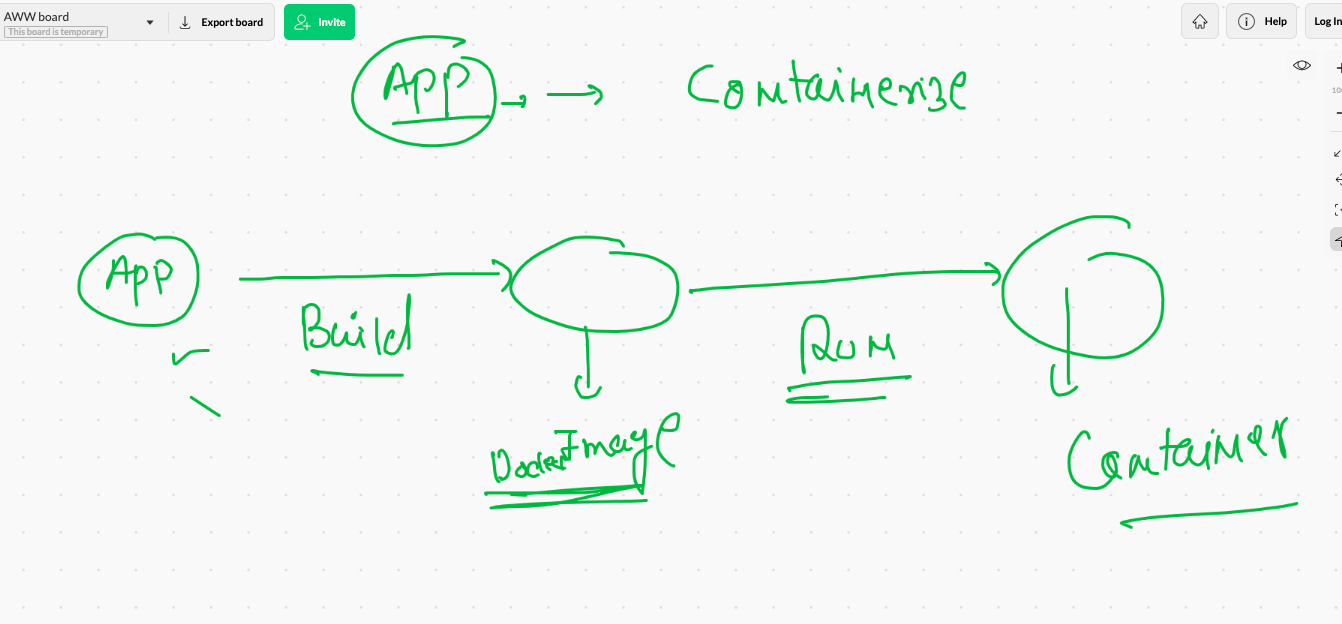 AWW board
This board is temporary
Export board
Invite
Help
Log In
App → → Containerize
App
Build
Run
Docker Image
Container